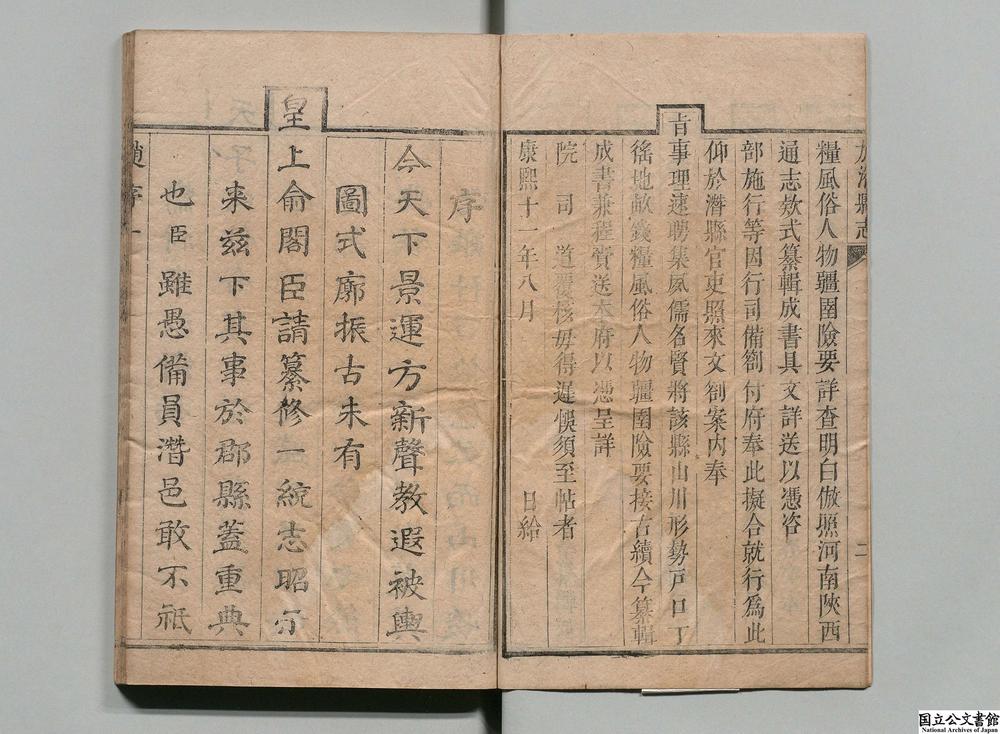 潛縣志
二
糧風俗人物疆圉險要詳查明白倣照河南陝西
通志欵式纂輯成書具文詳送以憑咨
部施行等因行司備劄付府奉此擬合就行爲此
仰於濳縣官吏照來文劄案内奉
旨事理速聘集夙儒名賢將該縣山川形勢戸口丁
徭地畝錢糧風俗人物疆圉險要接古續今纂輯
成書兼程賫送本府以憑呈詳
院司道覆核毋得遲悞須至帖者
康熙十一年八月 日給
序
今天下景運方新聲教遐被輿
圖式廓振古未有
皇上俞閣臣請纂修一統志昭示
來茲下其事於郡縣蓋重典
也臣雖愚備員濳邑敢不祗
趙序 一
国立公文書館
National Archives of Japan